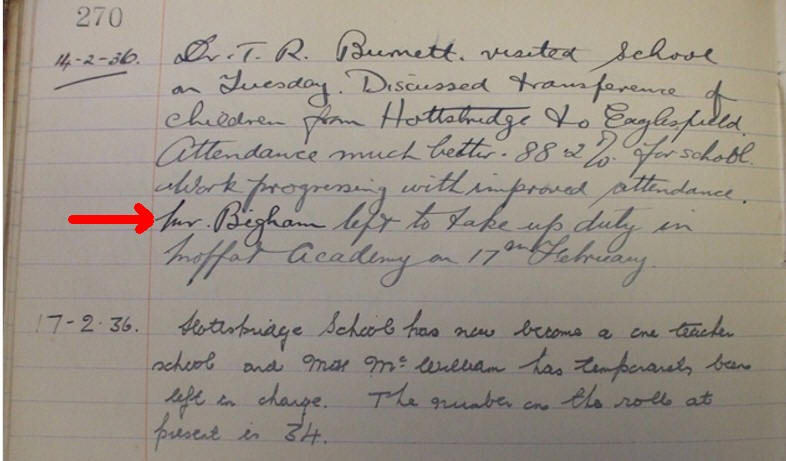 270
14-2-36. Dr. T. R. Burnett. visited school
on Tuesday. Discussed transference of
children from Hottsbridge to Eaglesfield.
Attendance much better. 88.2%. for school.
Work progressing with improved attendance.
Mr. Bigham left to take up duty in
Moffat Academy on 17th February.
17-2-36. Hottsbridge School has now become a one teacher
school and Miss McWilliam has temporarily been
left in charge. The number on the rolls at
present is 34.